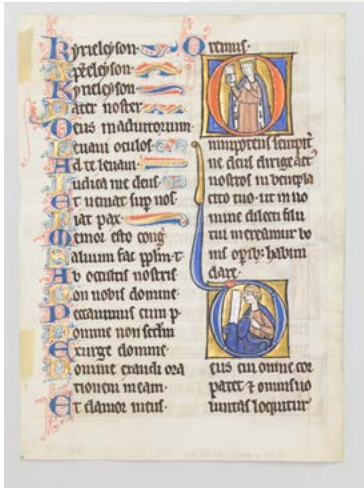 Kyrieleyson
Xp̄eleyson
Kyrieleyson
Pater noster
Deus in adiutorium
Leuaui oculos
Ad te leuaui
Iudica me deus
Et ueniat sup nos
Fiat pax
Memor esto cong
Saluum fac pplm t
Ab occultis nostris
Con nobis domine
Peccauimus cum p
Domine non scdm
Exurge domine
Domine exaudi ora
tionem meam
Et clamor meus
Oremus
Omnipotens sempit
ne deus dirige act
nostros in benepla
cito tuo ut in no
mine dilecti filii
tui mereamur bo
nis opib habun
dare
Deus cui omne cor
patet ⁊ omnis uo
luntas loquitur